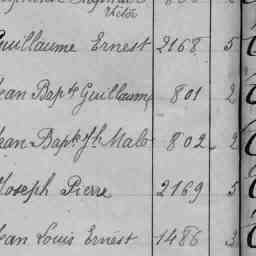 Victor
Guillaume Ernest 2168 5
Jean Bapte Guillaume 801 2
Jean Bapte Jh Malo 802 2
Joseph Pierre 2169 5
Jean Louis Ernest 1486 3